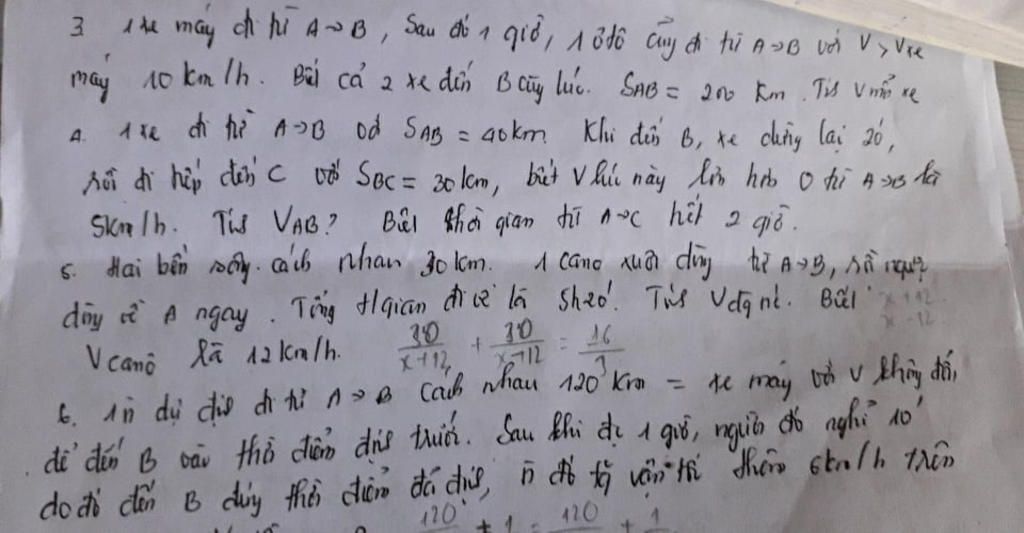 3. 1 xe máy đi từ A→B, Sau đó 1 giờ, 1 ôtô cũng đi từ A→B với V > Vxe
máy 10 km/h. Biết cả 2 xe đến B cùng lúc. SAB = 200 km. Tìm V mỗi xe
4. 1 xe đi từ A→B với SAB = 40km. Khi đến B, xe dừng lại 20',
rồi đi tiếp đến C với SBC = 30km, biết V lúc này lớn hơn từ A→B là
5km/h. Tìm VAB? Biết thời gian từ A→C hết 2 giờ.
5. Hai bến sông cách nhau 30km. 1 cano xuôi dòng từ A→B, rồi ngược
dòng về A ngay. Tổng t/gian đi về là 5h20'. Tìm Vdg nc. Biết x+12
x-12
Vcanô là 12km/h. 30/x+12 + 30/x-12 = 16/3
6. 1n dự định đi từ A→B cách nhau 120 km = xe máy với v không đổi,
để đến B vào thời điểm định trước. Sau khi đi 1 giờ, người đó nghỉ 10'
do đó đến B đúng thời điểm đã định, n đó tg vận tốc thêm 6km/h trên
120 + 1 = 120 + 1